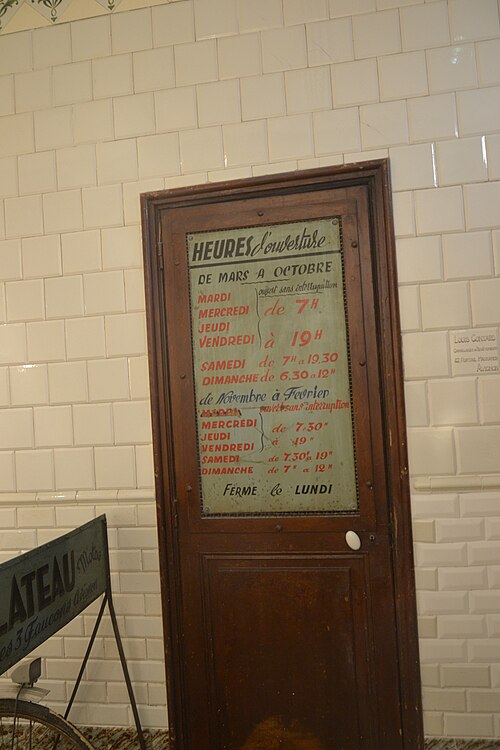 HEURES d'ouverture
DE MARS A OCTOBRE
ouvert sans interruption
MARDI
MERCREDI de 7H
JEUDI
VENDREDI à 19H
SAMEDI de 7H à 19.30
DIMANCHE de 6.30 à 12H
de Novembre à Février
MARDI ouvert sans interruption
MERCREDI de 7.30"
JEUDI
VENDREDI à 19"
SAMEDI de 7.30 à 19"
DIMANCHE de 7" à 12"
FERME le LUNDI
LOUIS GONTARD
AVIGNON
LATEAU
es 3 Faucons